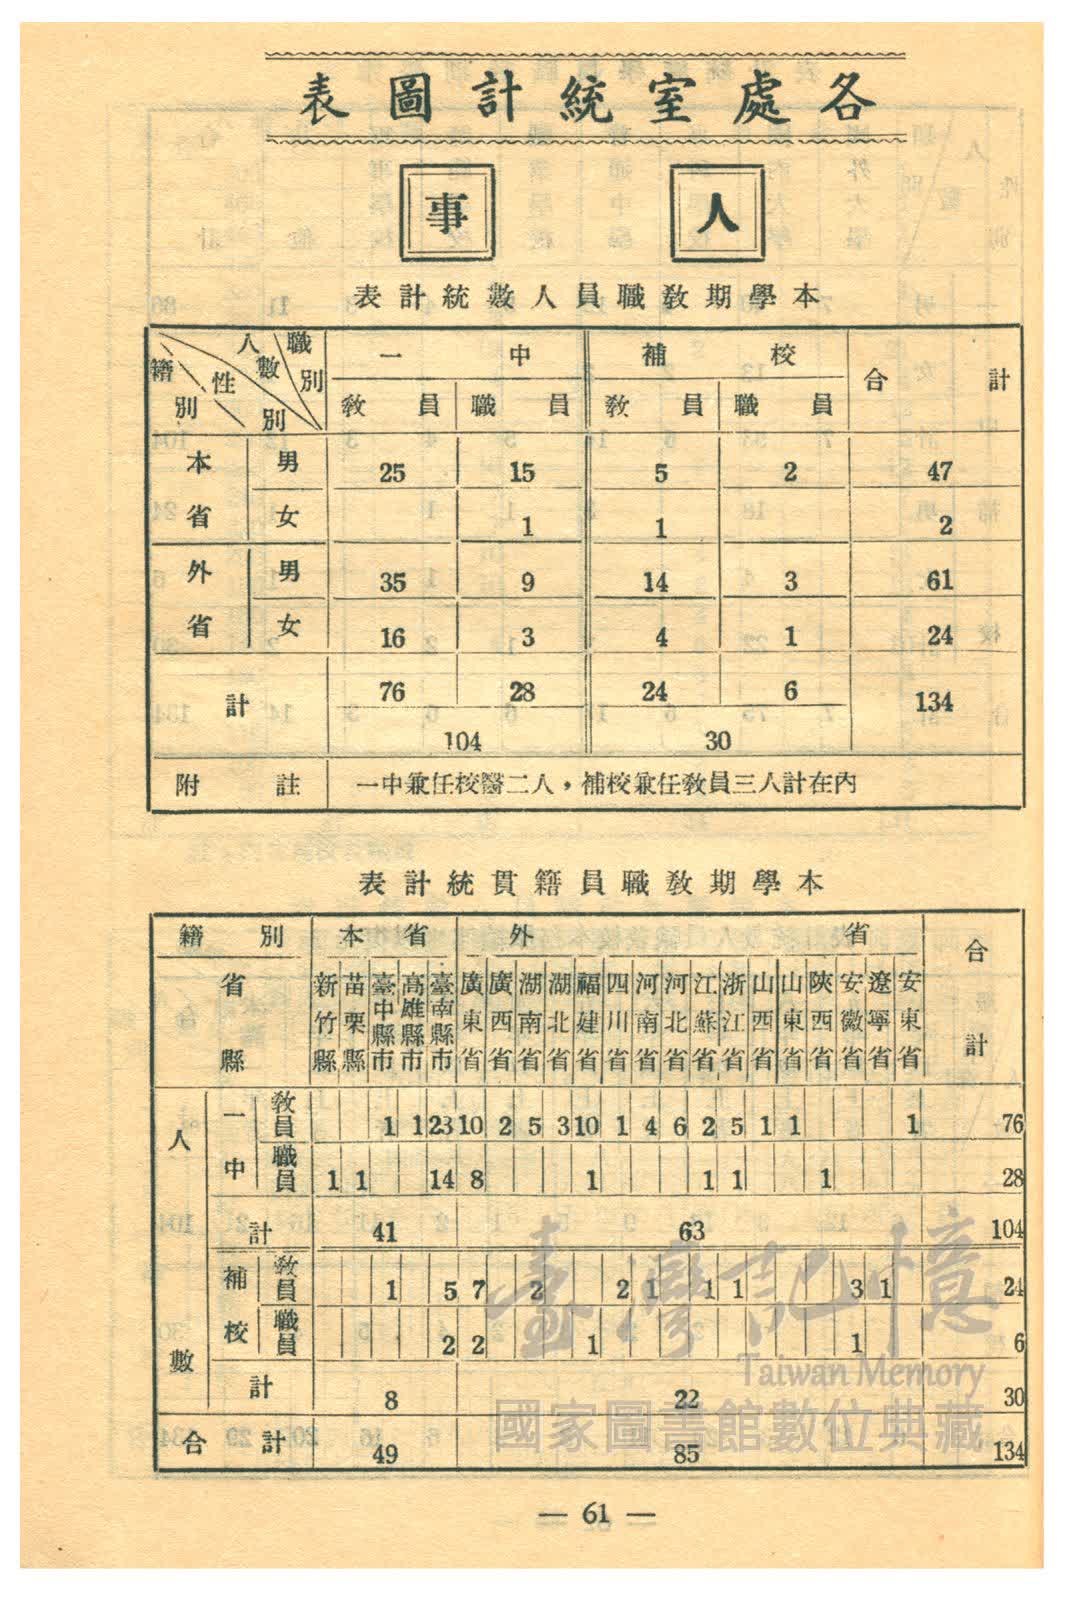 各處室統計圖表
人事
本學期教職員人數統計表
職別 人數 性別 籍別 一中 補校 合計
教員 職員 教員 職員
本省 男 25 15 5 2 47
女 1 1 2
外省 男 35 9 14 3 61
女 16 3 4 1 24
計 76 28 24 6 134
104 30
附註 一中兼任校醫二人，補校兼任教員三人計在內
本學期教職員籍貫統計表
籍別 本省 外省 合計
省縣 新竹縣 苗栗縣 臺中縣市 高雄縣市 臺南縣市 廣東省 廣西省 湖南省 湖北省 福建省 四川省 河南省 河北省 江蘇省 浙江省 山西省 山東省 陝西省 安徽省 遼寧省 安東省
人數 一中 教員 1 1 23 10 2 5 3 10 1 4 6 2 5 1 1 1 76
職員 1 1 14 8 1 1 1 1 28
計 41 63 104
補校 教員 1 5 7 2 2 1 1 1 3 1 24
職員 2 2 1 1 6
計 8 22 30
合計 49 85 134
臺灣記憶
Taiwan Memory
國家圖書館數位典藏
— 61 —